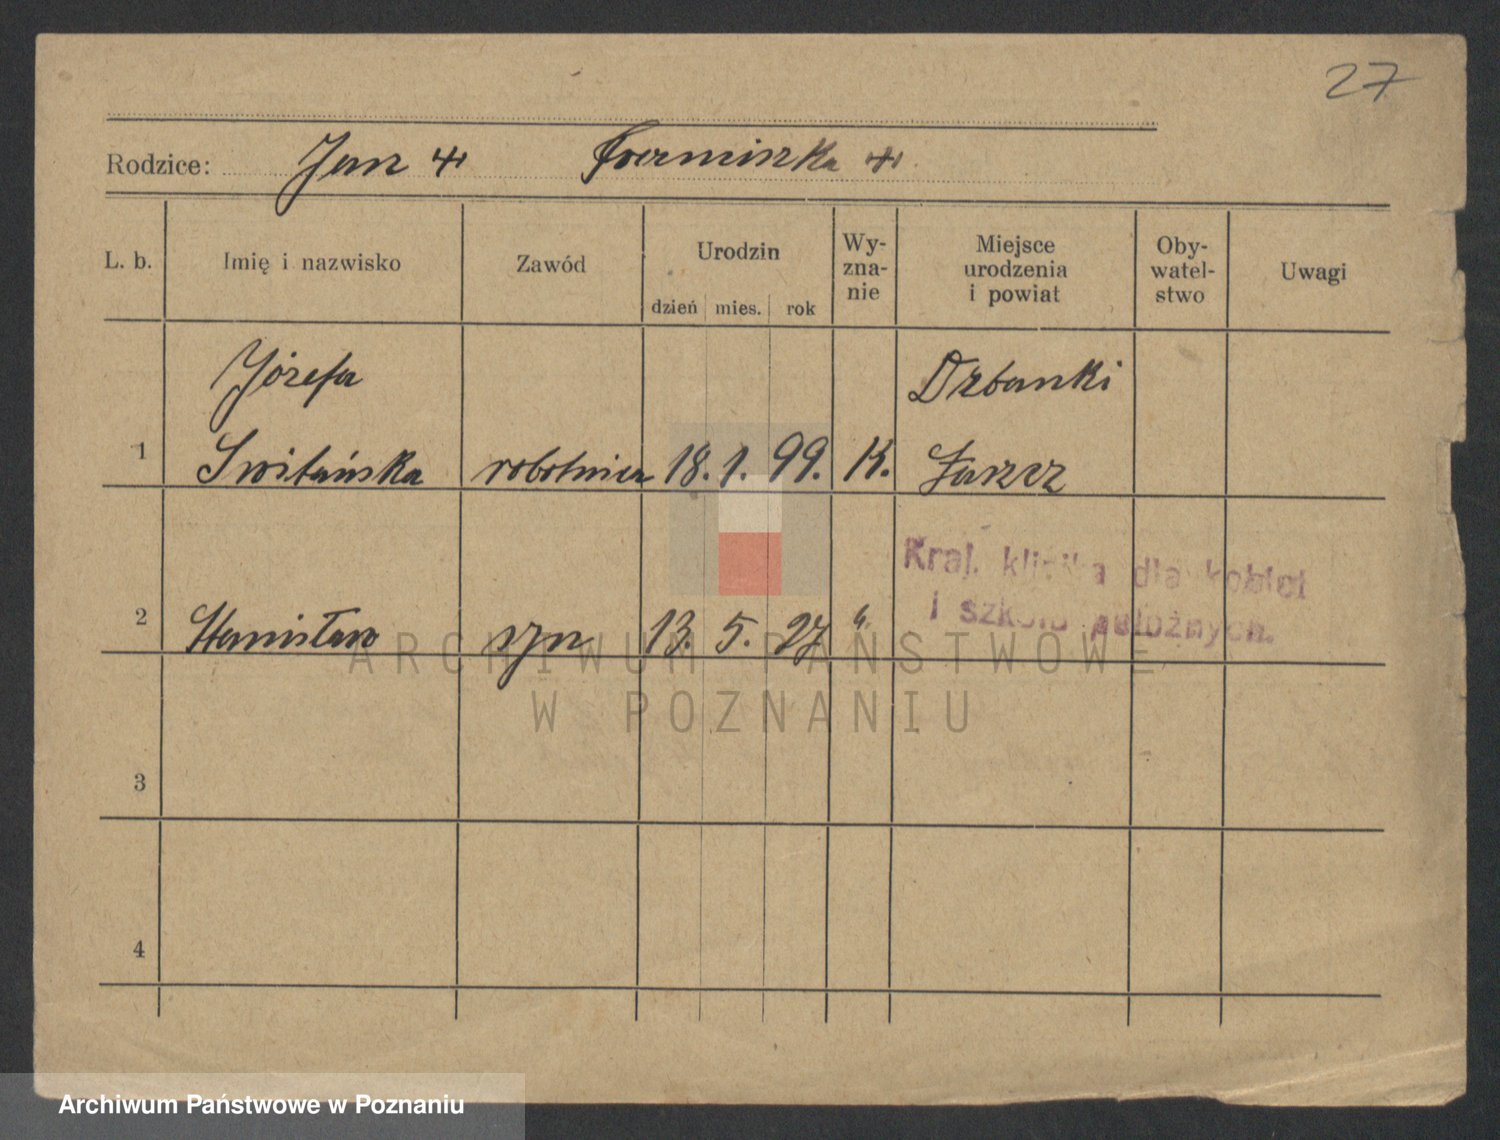 27
Rodzice: Jan Franciszka
L. b. Imię i nazwisko Zawód Urodzin Wy-zna-nie Miejsce urodzenia i powiat Oby-watel-stwo Uwagi
dzień mies. rok
Józefa Drbanki
1 Switańska robotnica 18. 1. 99. K.
Kraj. klinika dla kobiet
i szkoła położnych.
2 Stanisław syn 13. 5. 27 "
ARCHIWUM PAŃSTWOWE
W POZNANIU
3
4
Archiwum Państwowe w Poznaniu